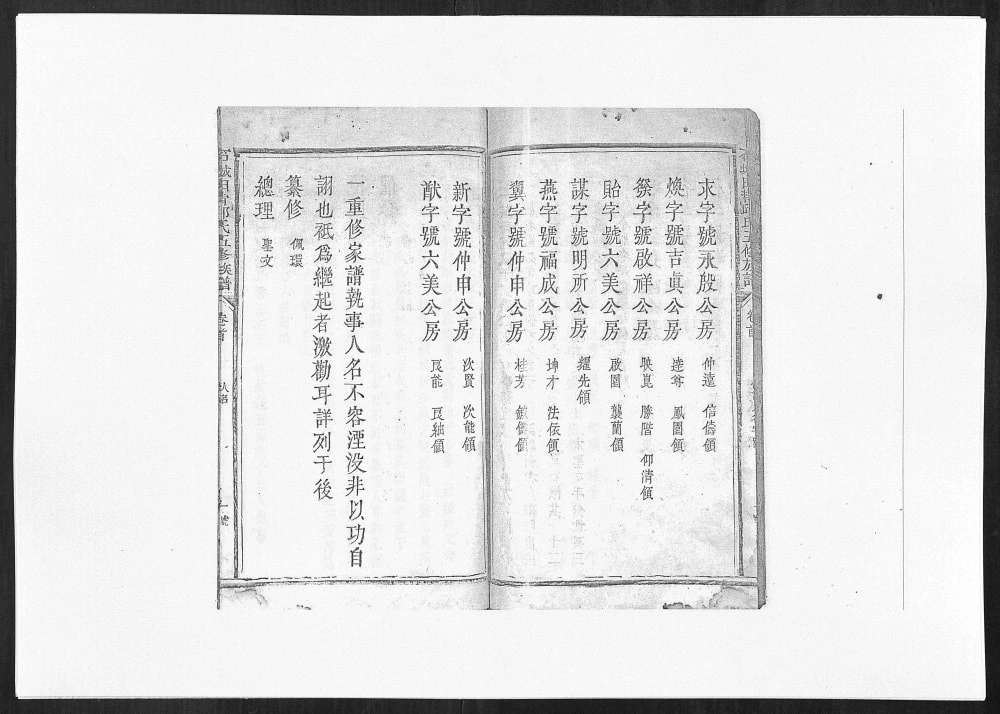 求字號永殷公房 仲遠 信儔領
煥字號吉眞公房 達尊 鳳圖領
發字號啟祥公房 映崑 勝階 仰清領
貽字號六美公房 啟圖 襲蘭領
謀字號明所公房 耀先領
燕字號福成公房 坤才 法依領
翼字號仲申公房 桂芳 領
新字號仲申公房 次賢 次能領
猷字號六美公房 良能 良紬領
一重修家譜執事人名不容湮没非以功自
詡也祇爲繼起者激勸耳詳列于後
纂修 佩環
總理 聖文
氏五修族譜 卷首 人名 號